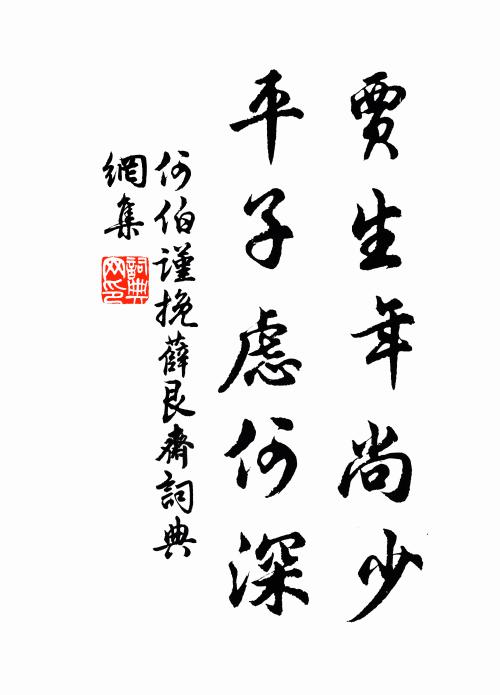 賈生年尚少
平子慮何深
何伯謹挽薛艮齋詞典
網集
詞典
网印